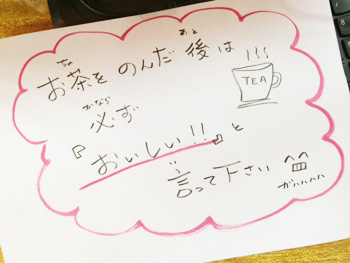 お茶をのんだ後は
ちゃ
あと
TEA
必ず
かなら
『おいしい!!』と
言って下さい
ガハハハハ